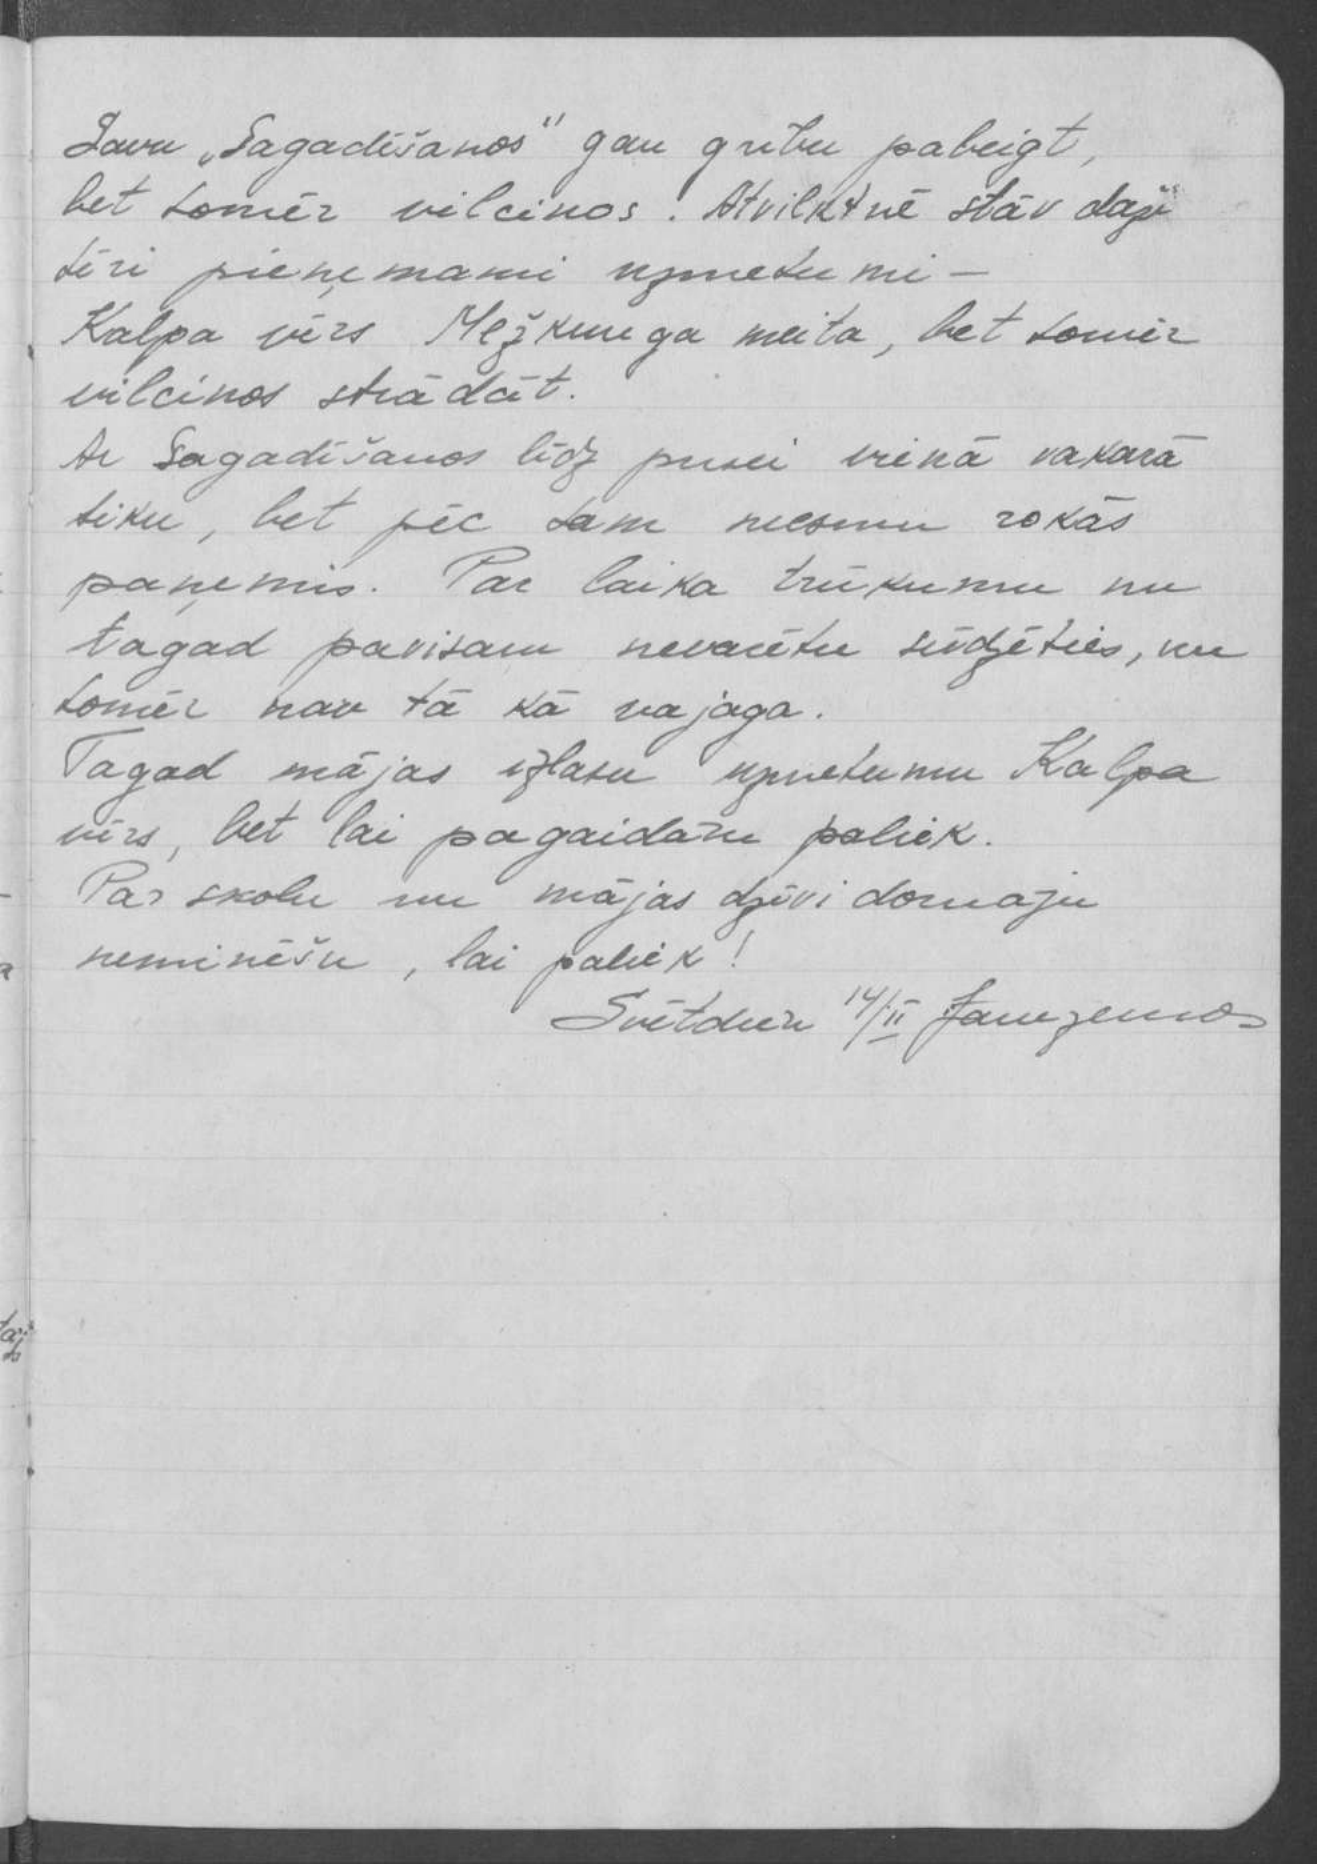 Savu „Sagadīšanos" gan gribu pabeigt,
bet tomēr vilcinos. Atvilktnē stāv daži
tīri pieņemami uzmetumi —
Kalpa vīrs Mežkunga meita, bet tomēr
vilcinos strādāt.
Ar Sagadīšanos līdz pusei vienā vakarā
tiku, bet pēc tam neesmu rokās
paņēmis. Par laika trūkumu nu
tagad pavisam nevarētu sūdzēties, nu
tomēr nav tā kā vajaga.
Tagad mājās izlasu uzmetumu Kalpa
vīrs, bet lai pagaidām paliek.
Par skolu un mājas dzīvi domāju
neminēšu, lai paliek!
Svētdien 14/II